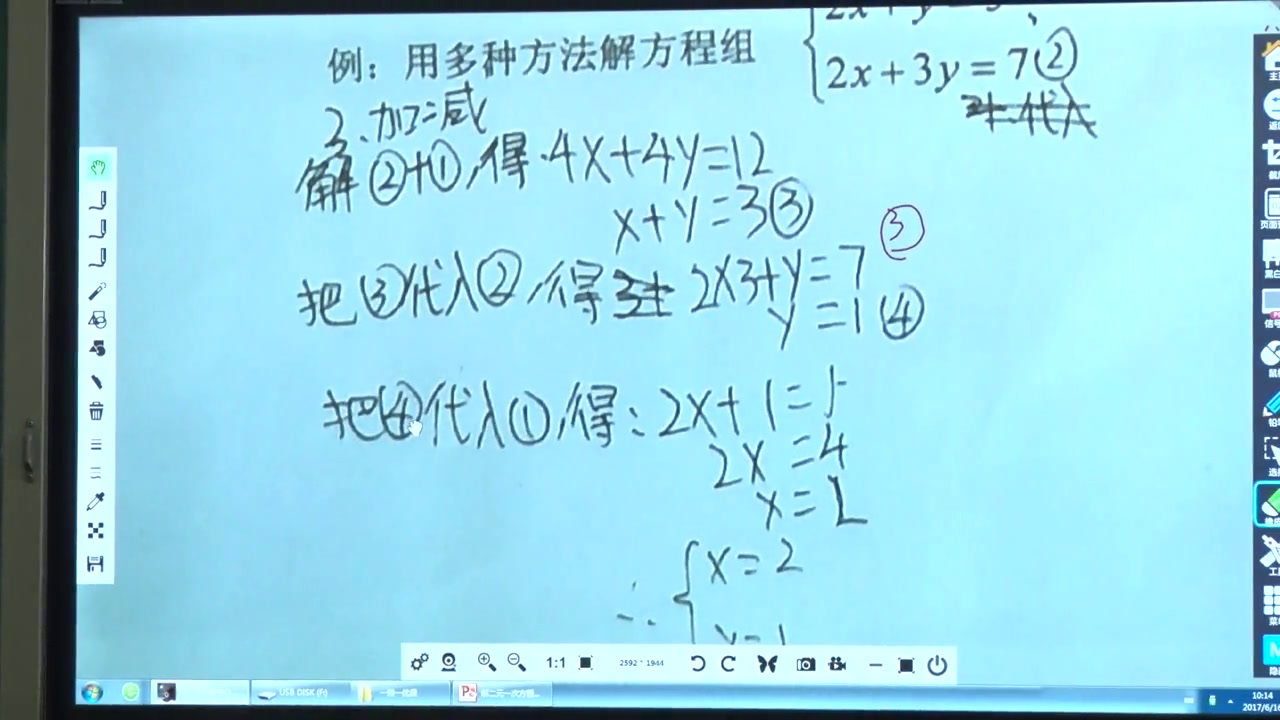 例：用多种方法解方程组
2x+y=5
2x+3y=7②
代入
3.加减
解②+①,得.4x+4y=12
x+y=3③
③
把③代入②,得 2×3+y=7
y=1④
把④代入①,得:2x+1=5
2x=4
x=2
∴{x=2
y=1
1:1
2592 * 1944
USB DISK (F:)
10:14
2017/6/16